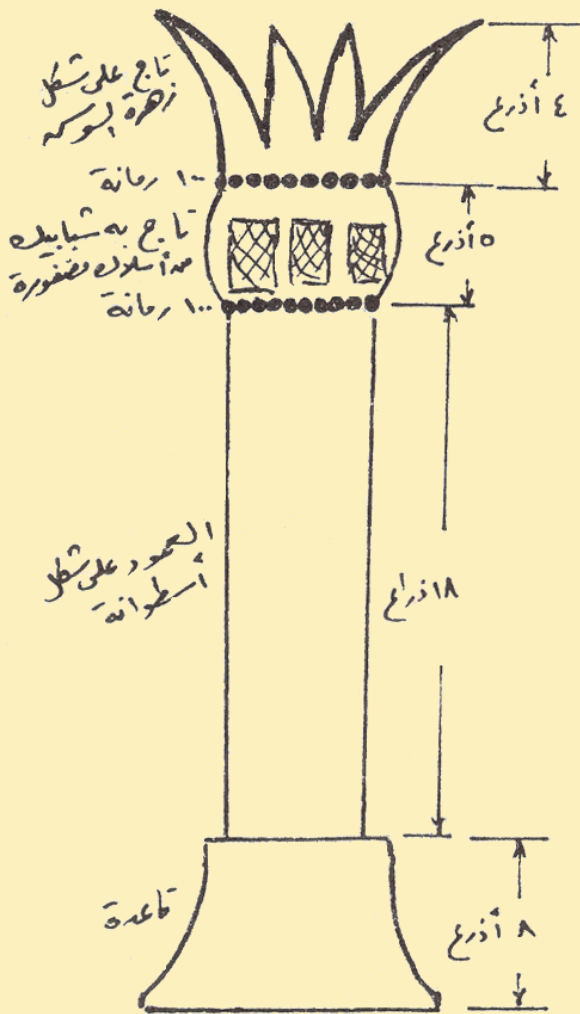 تاج على شكل
زهرة السوسن
٤ أذرع
١٠٠ رمانة
تاج به شبابيك
من أسلاك مضفورة
٥ أذرع
١٠٠ رمانة
العمود على شكل
أسطوانة
١٨ ذراع
قاعدة
٨ أذرع